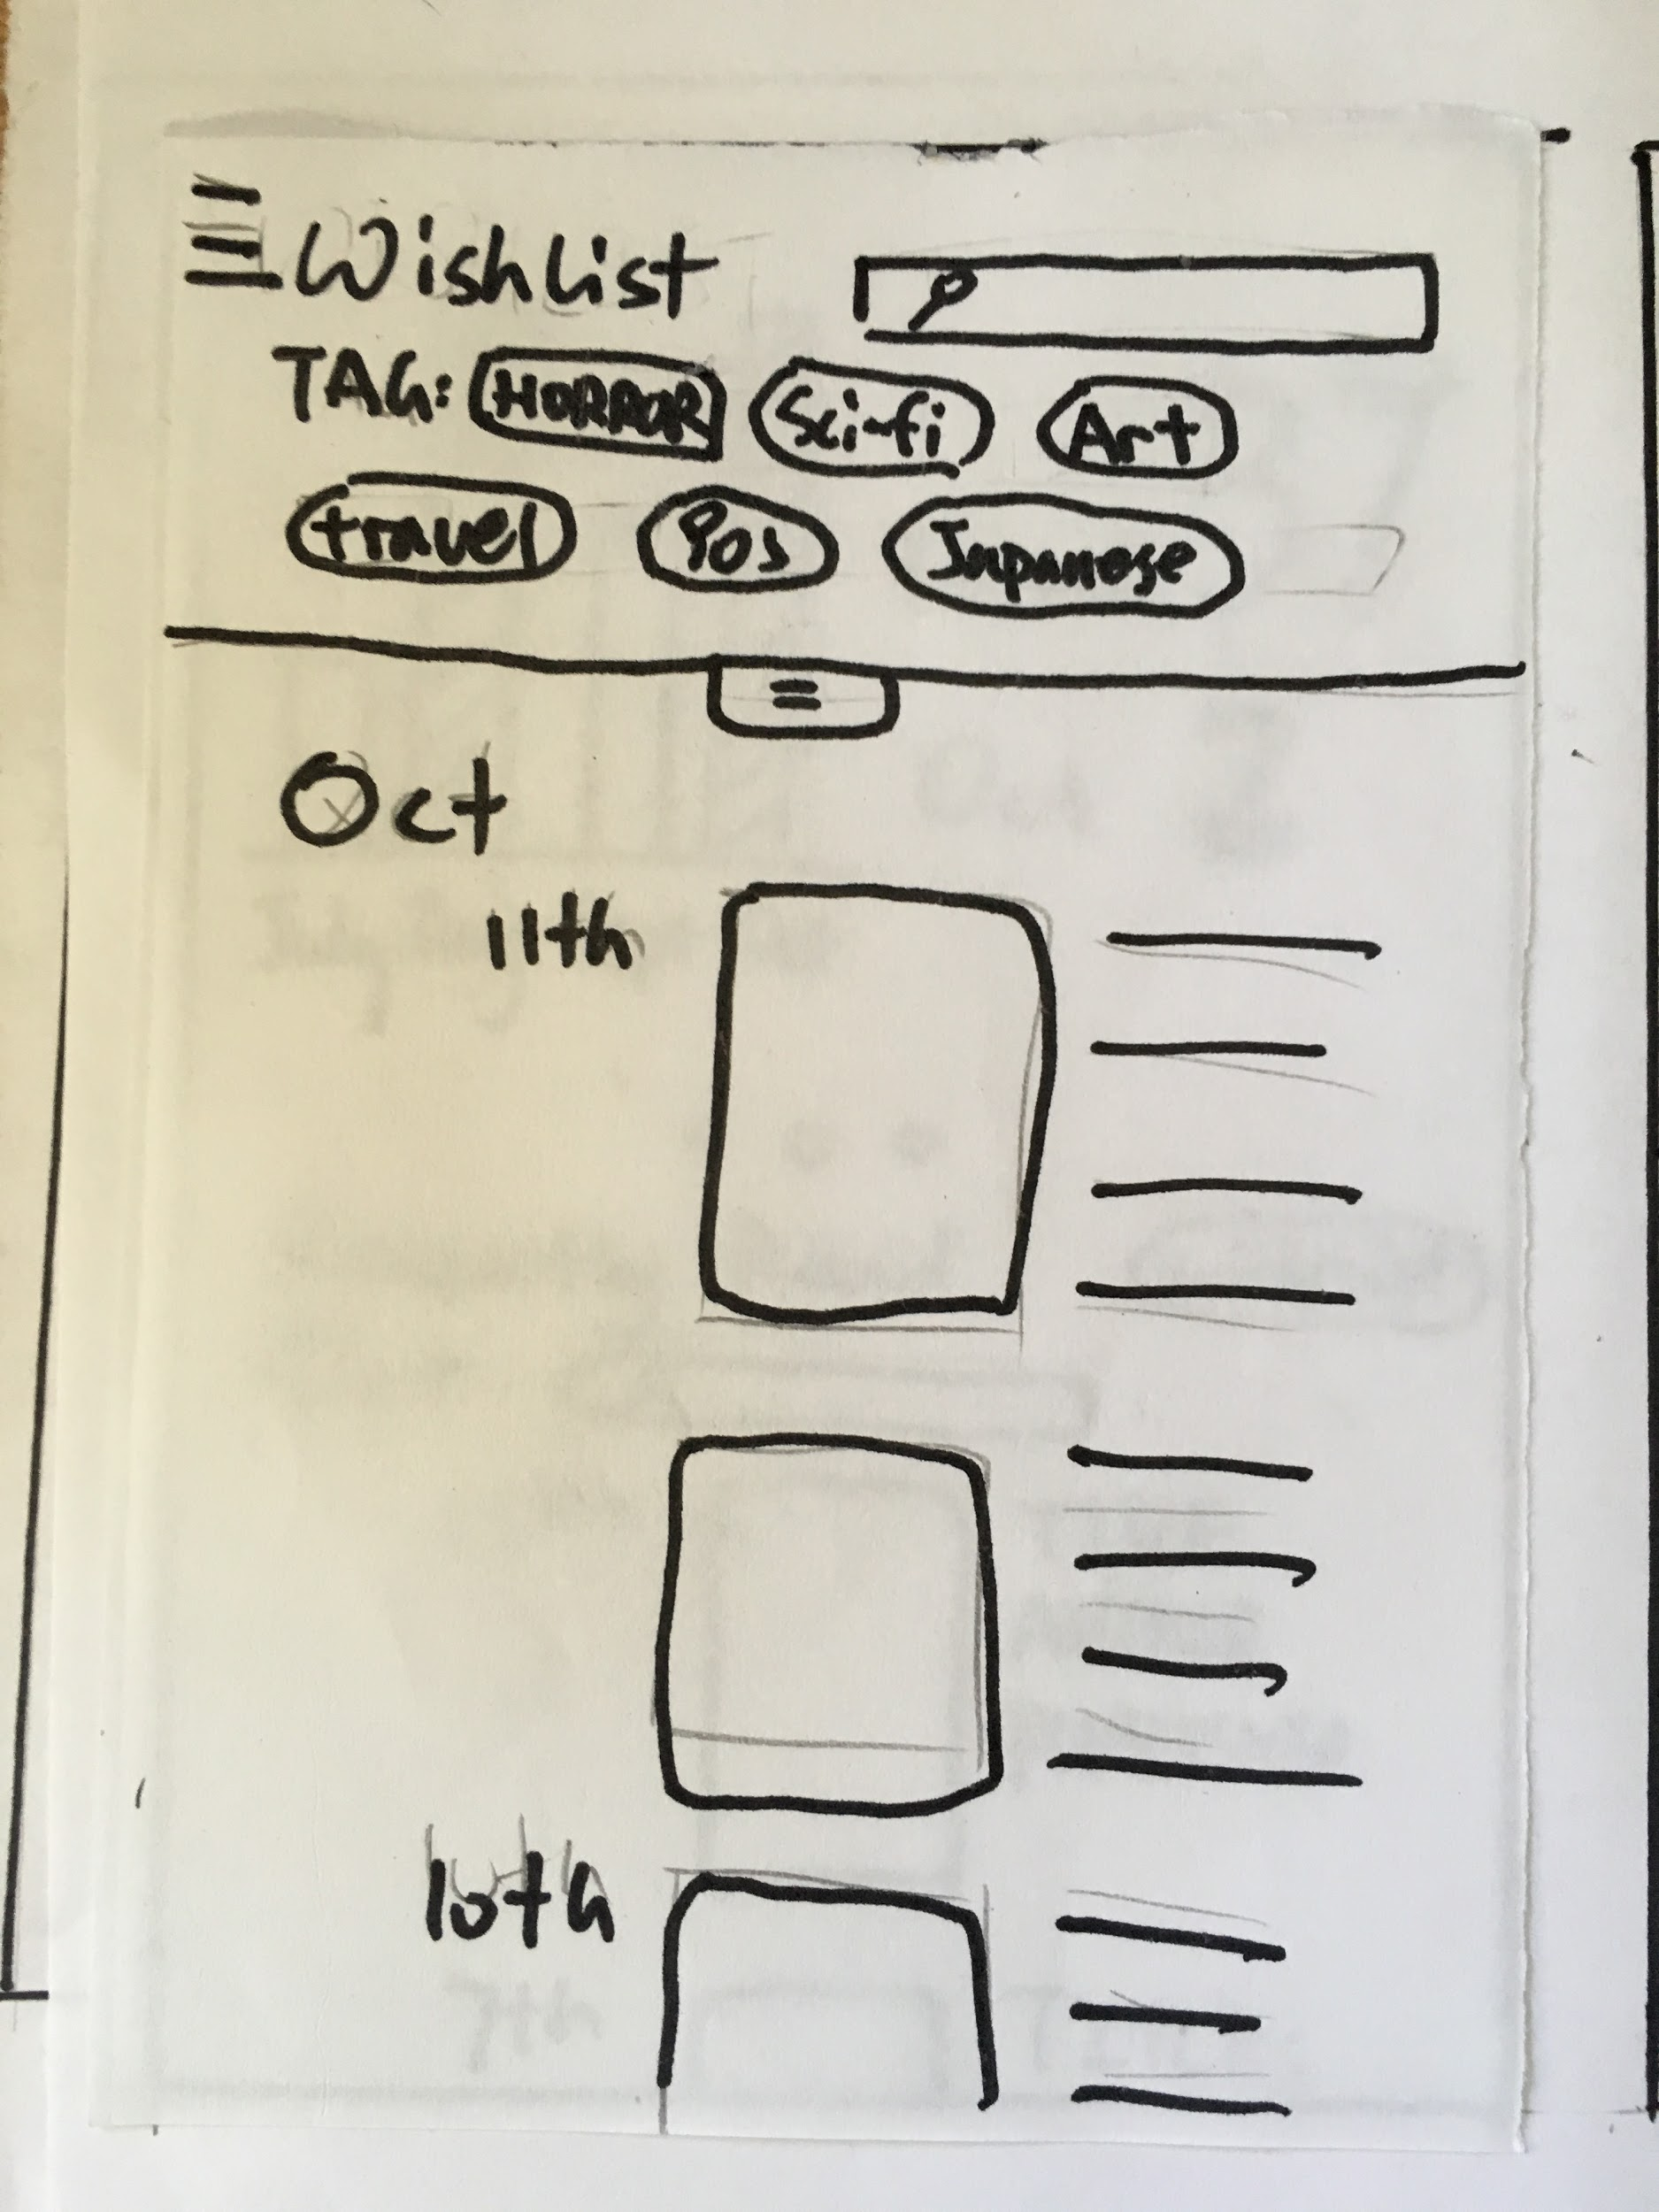 Wishlist
TAG: HORROR Sci-fi Art
travel 90s Japanese
Oct
11th
10th